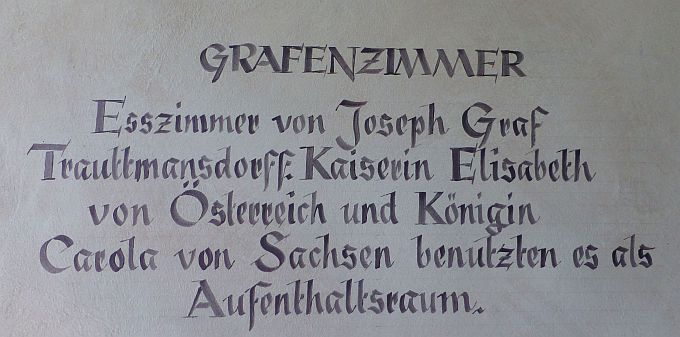 GRAFENZIMMER
Esszimmer von Joseph Graf
Trauttmansdorff. Kaiserin Elisabeth
von Österreich und Königin
Carola von Sachsen benutzten es als
Aufenthaltsraum.